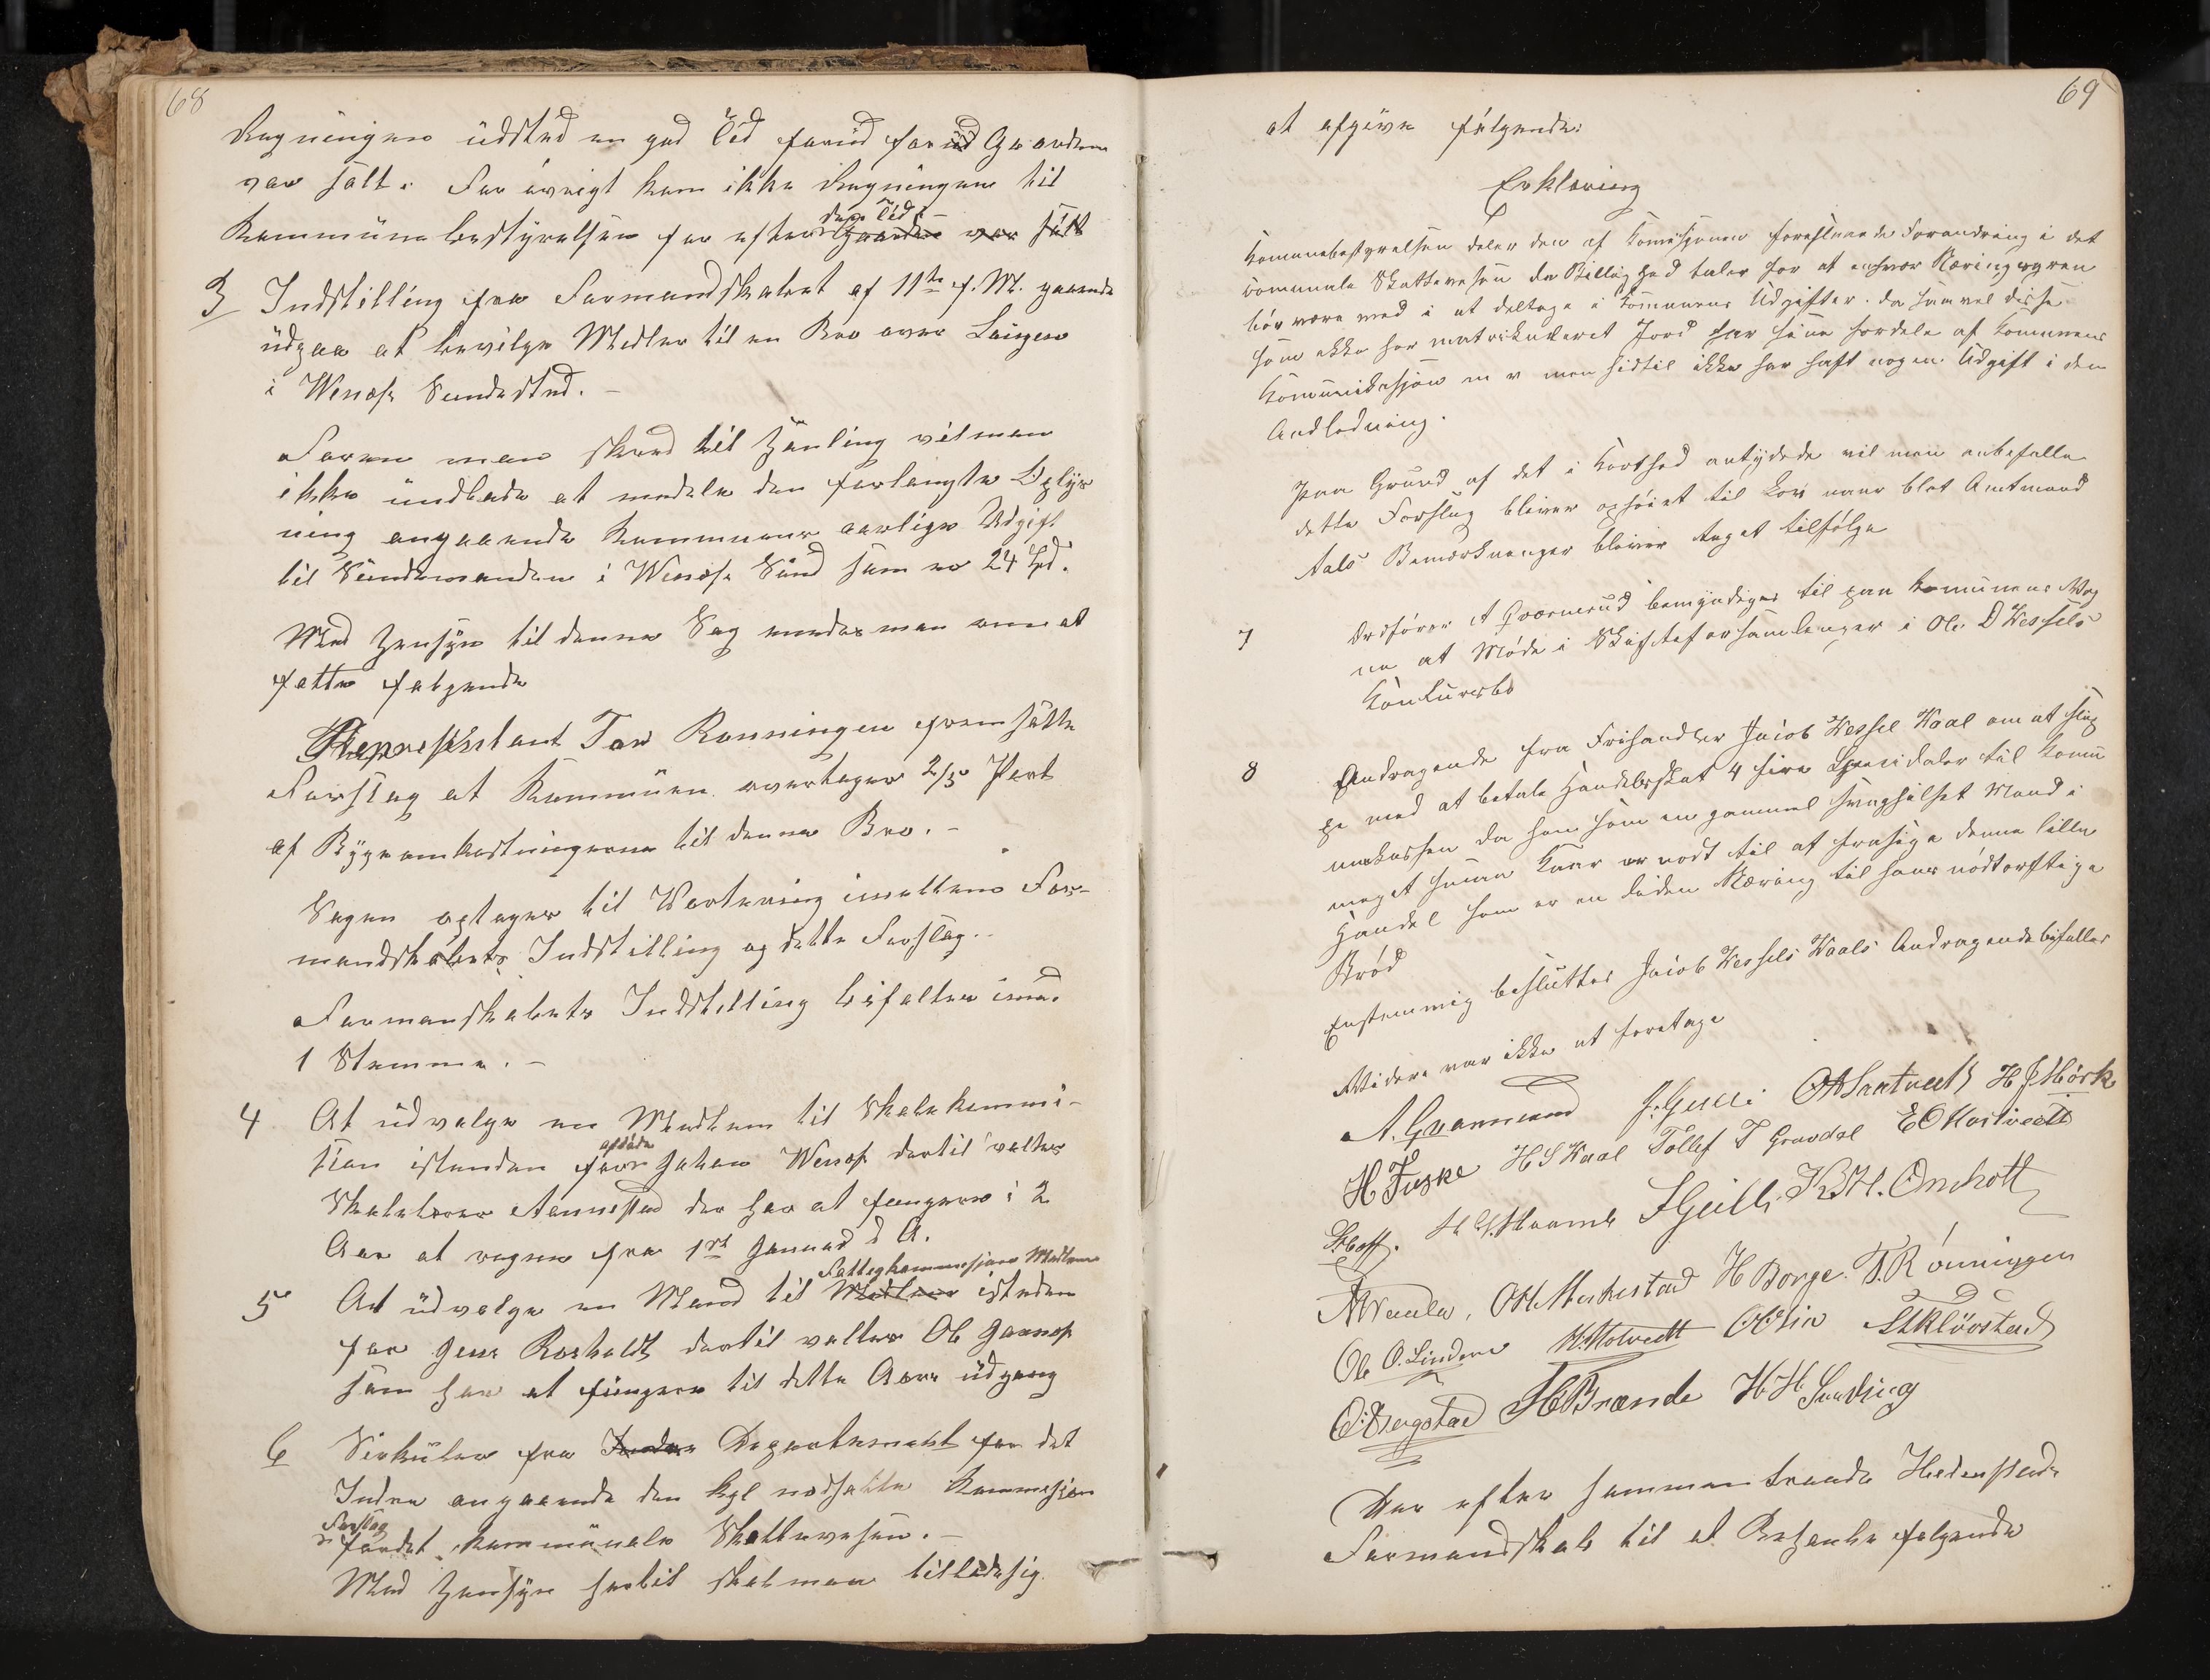 68
Regningen udsted en god Tid forud for ud Gaarden
var solt. For øvrigt kom ikke Regningen til
Kommunebestyrelsen før efter Gaarden var solt
den Tid. –
3 Indstilling fra Formandskabet af 11te f. M. gaaende
udpaa at bevilge Midler til en Bro over Laugen
i Wenæs Sundsted. –
Forend man skred til Handling vil man
ikke undlade at meddele den forlangte Oplys
ning angaaende Kommunens aarlige Udgift
til Sundmanden i Wenæs Sund som er 24 Spd.
Med Hensyn til denne Sag enedes man om at
fatte følgende
Representant Tor Rønningen fremsatte
Forslag at Kommunen overtager 2/5 Part
af Bygeomkostningerne til denne Bro. –
Sagen optages til Vortering imellem For-
mandskabets Indstilling og dette Forslag.
Formanskabets Indstilling bifaltes imod
1 Stemme. –
4 At udvælge en Medlem til Skolekommi-
sion istenden for afdøde Johan Wenæs dertil valtes
Skolelærer Aennestad der har at fungere i 2
Aar at regne fra 1st Januar d. A.
5 At udvælge en Mand til Medlem Fattigkommisjons Medlem istedem
for Jens Roshaldt dertil valtes Ole Gavnæs
som har at fungere til dette Aars udgang
6 Sirkulær fra Indre Departement for det
Indre angaaende den kgl nedsatte Kommisjon
s Forslag fordet kommunale Skattevesen. –
Med Hensyn hertil skal man tillade sig
69
at afgive følgende:
Erklæring
Komunebestyrelsen deler den af Komisjonen foreslaaede Forandring i det
komunale Skattevesen da Billighed taler for at enhver Næringsgren
bør være med i at deltage i Komunens Udgifter. da saavel disse
som ikke har matrikuleret Jord har sine fordele af Komunens
Komunikasjon m v men hidtil ikke har haft nogen Udgift i den
Andledning.
Paa Grund af det i Korthed antydede vil man anbefalle
dette Forslag bliver ophøiet til Lov naar blot Amtmand
Aals Bemærkninger bliver taget tilfølge
7 Ordfører A Gværnerud bemyndiges til paa Komunens Veg
ne at Møde i Skiftesforsamlinger i Ole D Wessels
Konkursbo
8 Andragende fra Frihandler Jacob Wessel Waal om at slip
pe med at betale Handelsskat 4 fire Spesidaler til Komu
nekassen da han som en gammel svaghelset Mand i
meget smaa Kaar er nødt til at frasige denne lille
Handel som er en liden Næring til hans nødtørftige
Brød
Enstemmig besluttes Jacob Wessels Waals Andragende bifalles
Widere var ikke at foretage
A. Gvarnerud OA Saatvedt H J Mörk
H Fuske H S Waal Tollef T Gravdal E O Kortvedt
Stboff. J Gulli K. H. Omholt
OH Myrkestad H Borge. T. Rönningen
Ole O. Linderv H. Holtvedt O O Lia St Klövstad
O: Bergstad H Brænde H H Sunding
Der efter sammentraadte Hedenstads
Formandskab til at Behanle følgende